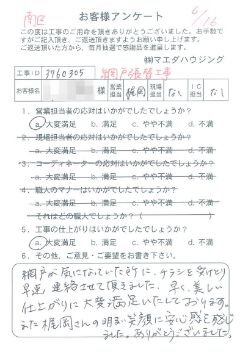 南区
6/16
お客様アンケート
この度は工事のご用命を頂きありがとうございました。お手数で
すがご記入頂き、ご返送頂きますようお願い申し上げます。
ご返送頂いた方から、毎月抽選で感謝品を進呈します。
㈱マエダハウジング
工事ID 3760305 網戸張替工事
お客様名 様 営業担当 梶岡 現場担当 なし IC担当 なし
1. 営業担当者の応対はいかがでしたでしょうか?
a. 大変満足 b. 満足 c. やや不満 d. 不満
2. 現場担当者の応対はいかがでしたでしょうか?
a. 大変満足 b. 満足 c. やや不満 d. 不満
3. コーディネーターの応対はいかがでしたでしょうか?
a. 大変満足 b. 満足 c. やや不満 d. 不満
4. 職人のマナーはいかがでしたでしょうか?
a. 大変満足 b. 満足 c. やや不満 d. 不満
それはどの職人でしょうか?( )
5. 工事の仕上がりはいかがでしたでしょうか?
a. 大変満足 b. 満足 c. やや不満 d. 不満
6. その他、ご意見・ご要望をお書き下さい。
網戸が気になっていた所に、チラシを受けとり
早速連絡させて頂きました。早く、美しい
仕上がりに大変満足いたしております。
また梶岡さんの明るい笑顔に安心感を感じ
ました。ありがとうございました。